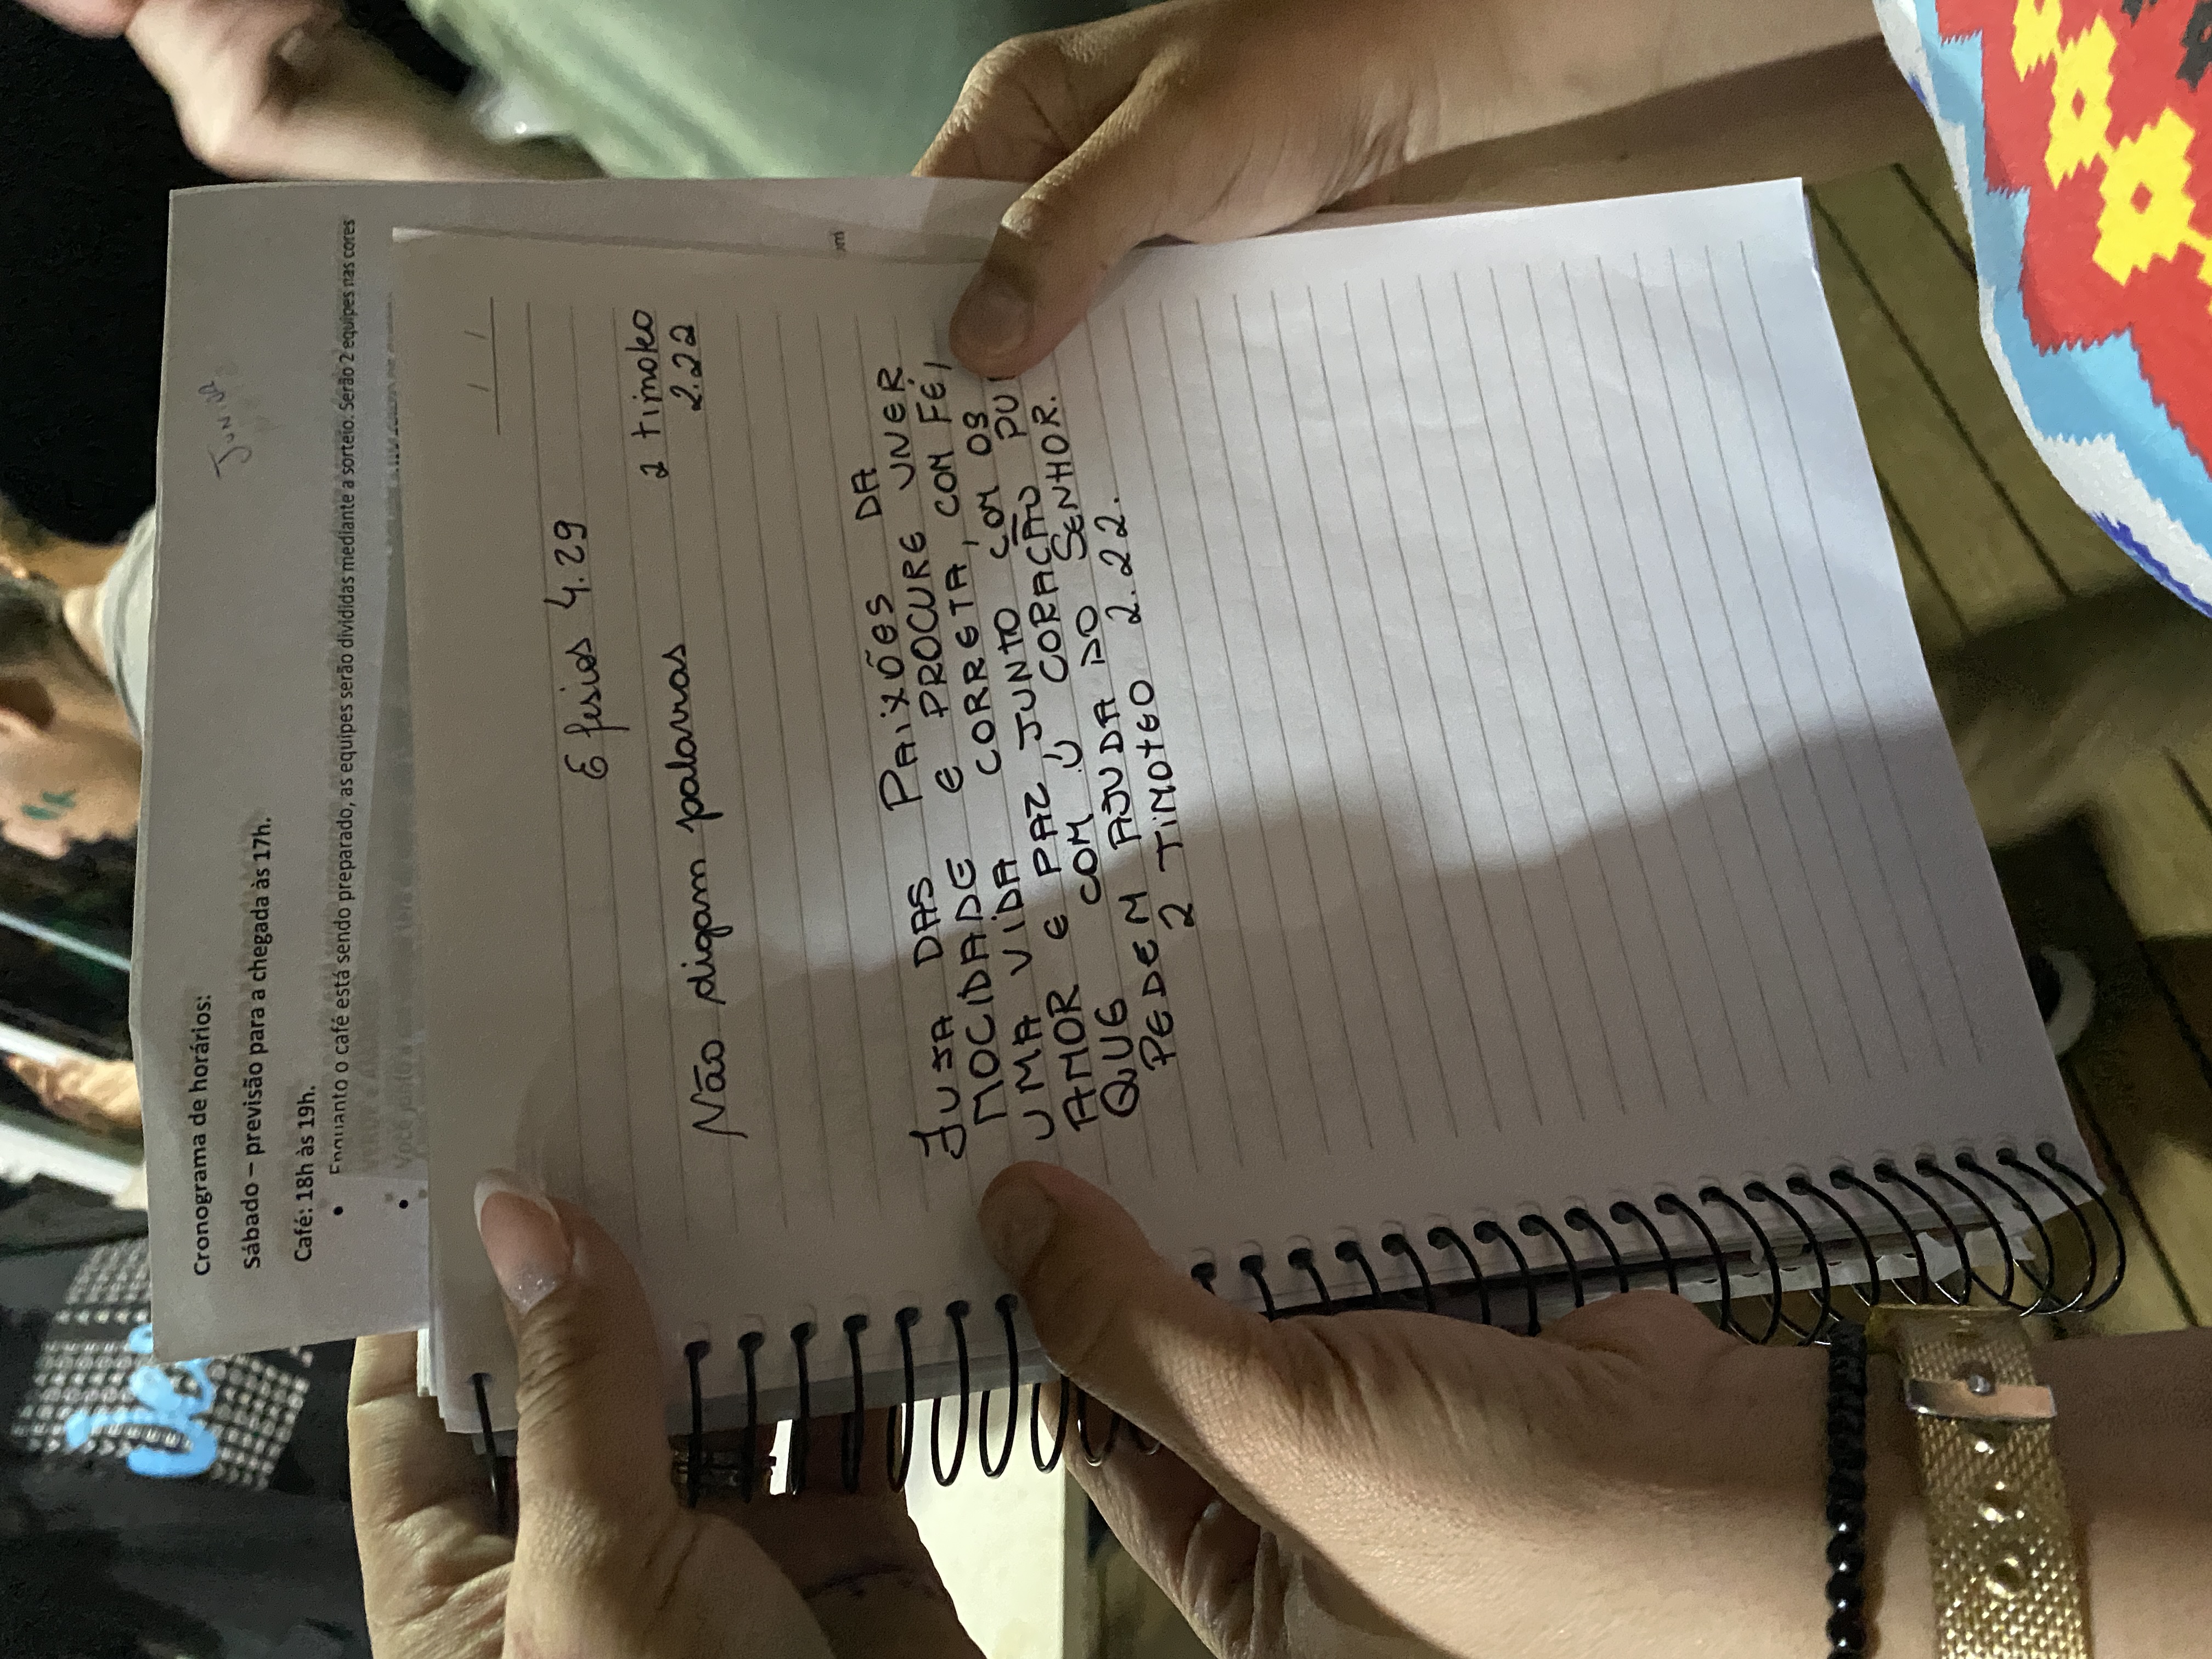 Cronograma de horários:
JUNIOR
Sábado – previsão para a chegada às 17h.
Café: 18h às 19h.
• Enquanto o café está sendo preparado, as equipes serão divididas mediante a sorteio. Serão 2 equipes nas cores
VERDE e
• Você junto a
Efesios 4.29
2 timoteo
2.22
Não digam palavras
FUJA DAS PAIXÕES DA
MOCIDADE E PROCURE VIVER
UMA VIDA CORRETA, COM FÉ,
AMOR E PAZ, JUNTO COM OS
QUE COM O CORAÇÃO PU
PEDEM AJUDA DO SENHOR.
2 TIMOTEO 2.22.